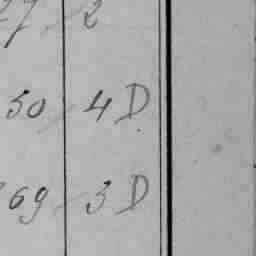 27 2
50 4 D
69 3 D